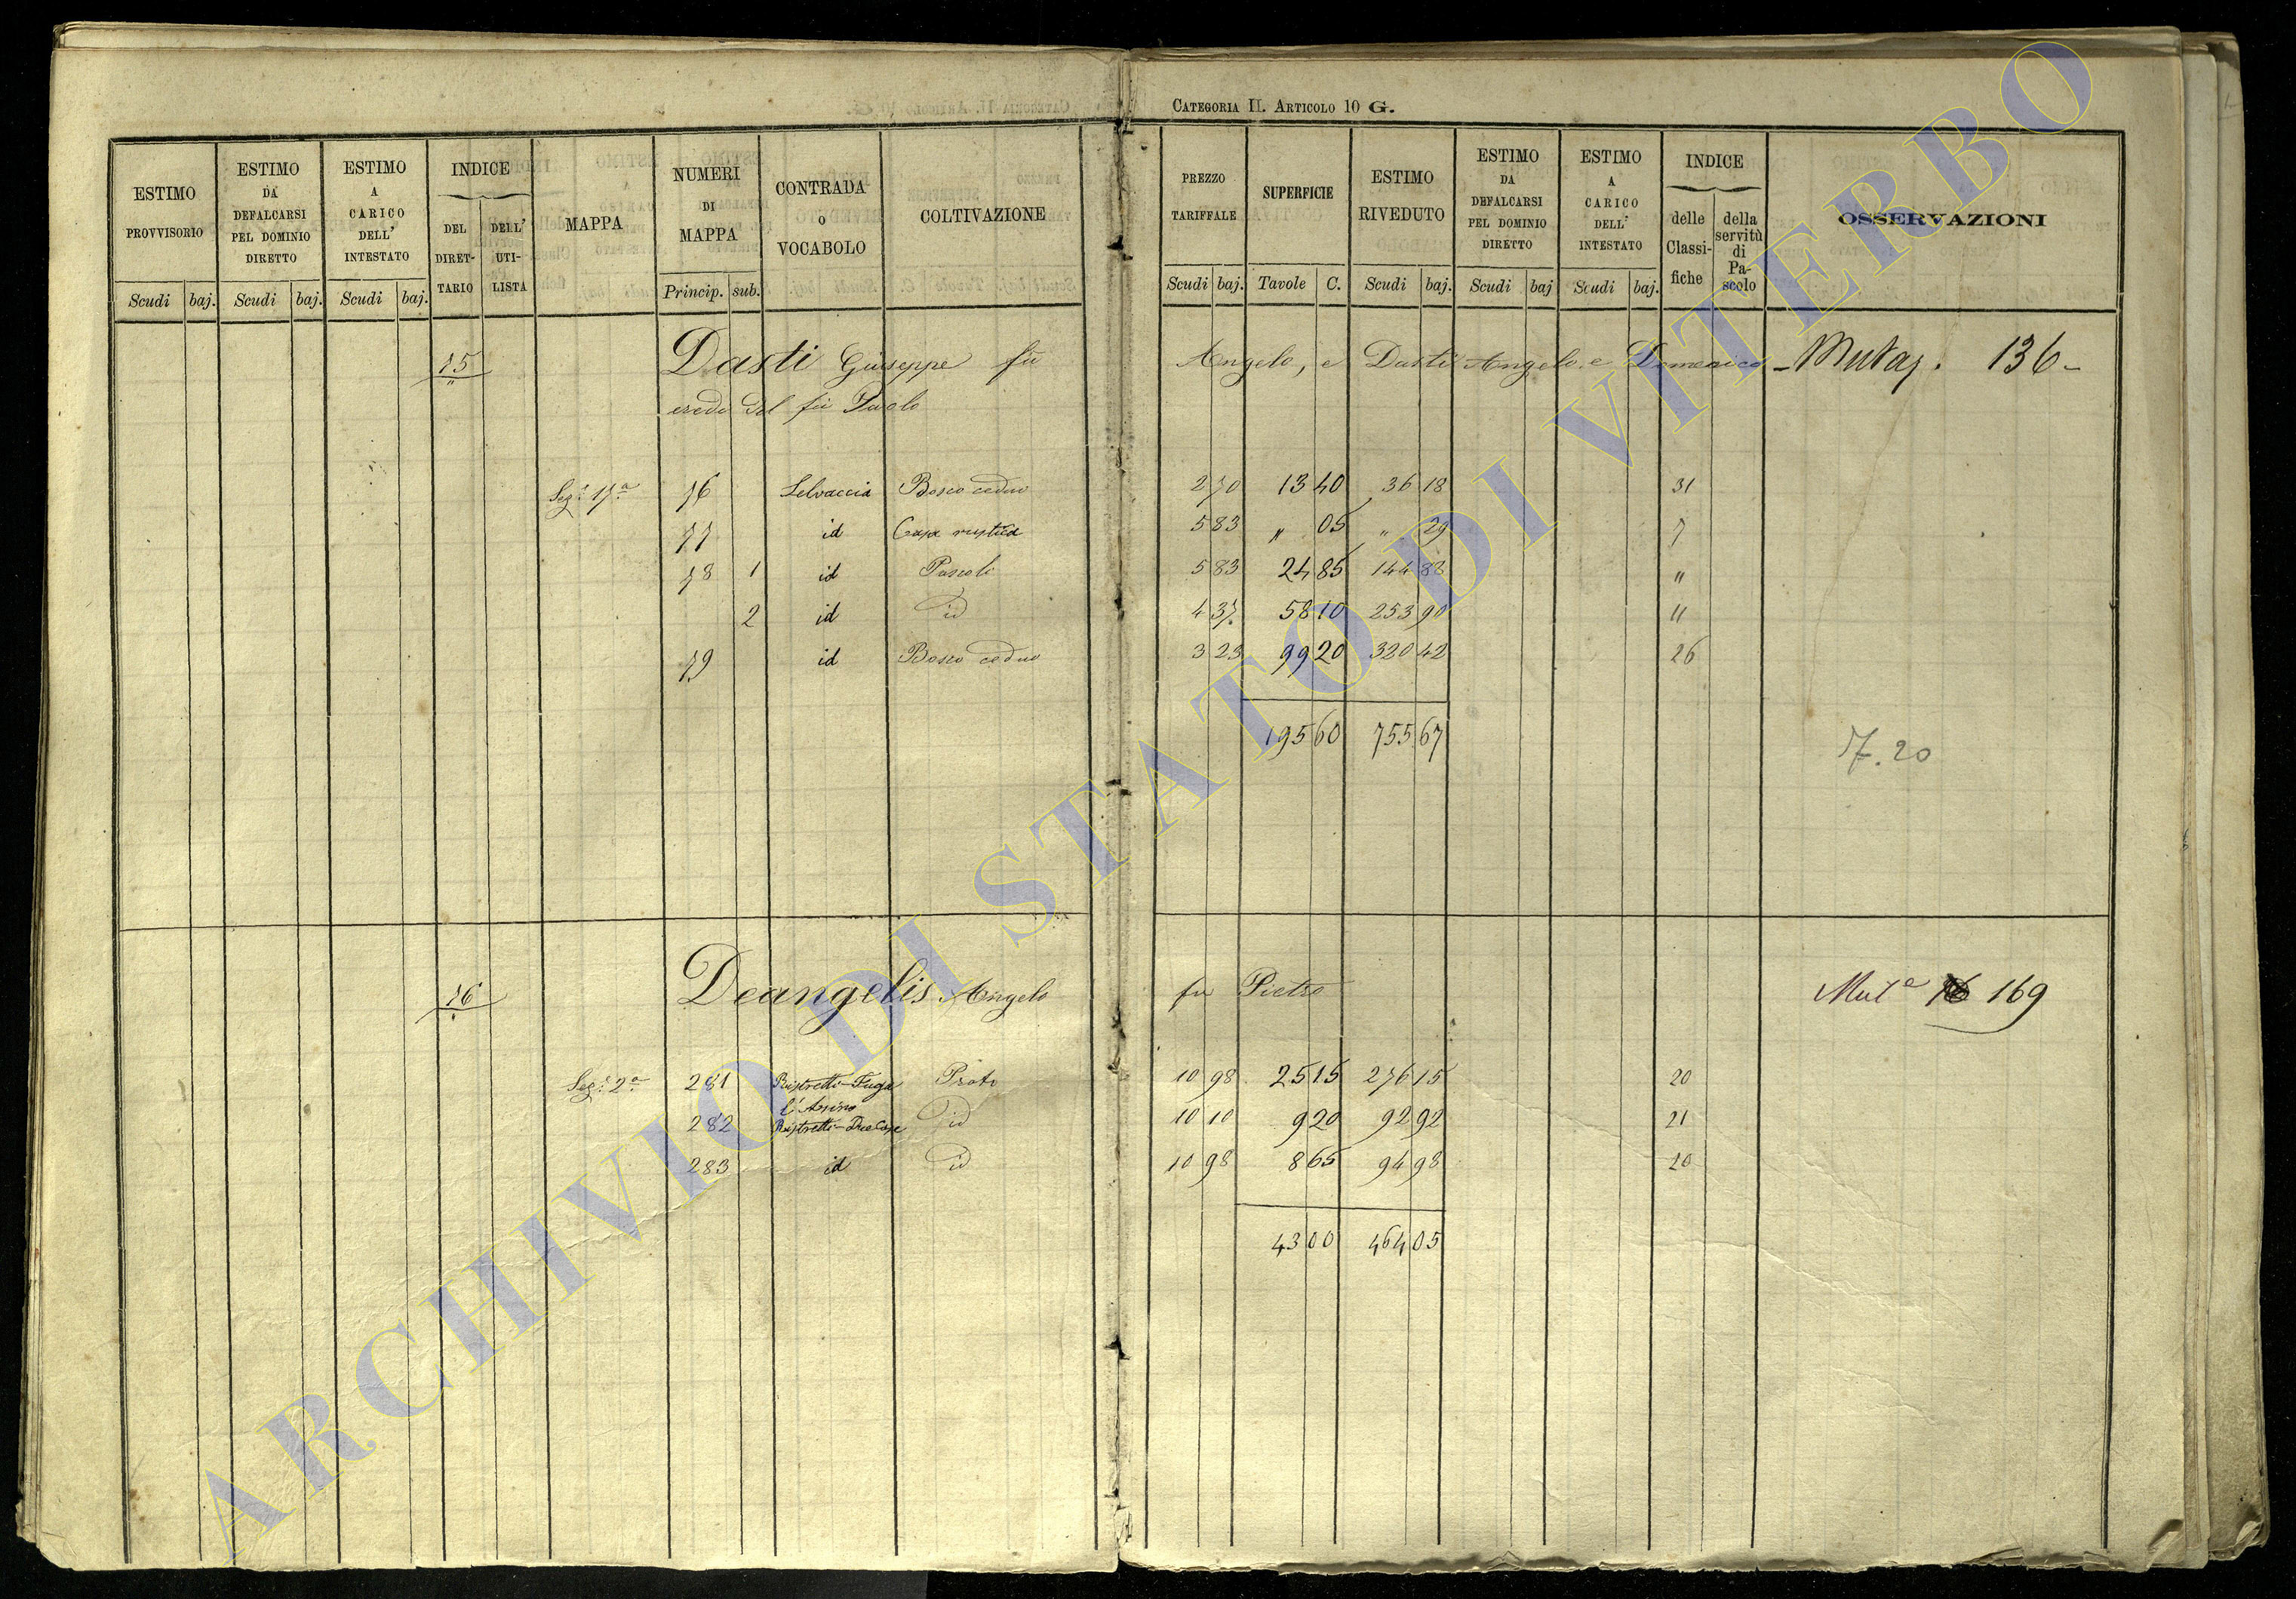 CATEGORIA II. ARTICOLO 10 G.
ESTIMO PROVVISORIO Scudi baj.
ESTIMO DA DEFALCARSI PEL DOMINIO DIRETTO Scudi baj.
ESTIMO A CARICO DELL' INTESTATO Scudi baj.
INDICE DEL DIRET-TARIO DELL' UTI-LISTA
MAPPA
NUMERI DI MAPPA Princip. sub.
CONTRADA O VOCABOLO
COLTIVAZIONE
PREZZO TARIFFALE Scudi baj.
SUPERFICIE Tavole C.
ESTIMO RIVEDUTO Scudi baj.
ESTIMO DA DEFALCARSI PEL DOMINIO DIRETTO Scudi baj
ESTIMO A CARICO DELL' INTESTATO Scudi baj.
INDICE delle Classi-fiche della servitù di Pa-scolo
OSSERVAZIONI
15 Dasti Giuseppe fù Angelo, e Dasti Angelo e Domenico - Mutaz. 136 -
eredi del fù Paolo
Sez.e 17.a 76 Selvaccia Bosco ceduo 2 70 13 40 36 18 31
77 id Casa rustica 5 83 " 05 " 29 7
78 1 id Pascoli 5 83 24 85 144 88 "
2 id id 4 37 58 10 253 90 11
79 id Bosco ceduo 3 23 99 20 320 42 26
195 60 755 67
7.20
16 Deangelis Angelo fu Pietro Mut.e 169
Sez.e 2.a 281 Ristretti-Fuga l'Asino Prato 10 98 25 15 276 15 20
282 Ristretti-Due Case id 10 10 9 20 92 92 21
283 id id 10 98 8 65 94 98 20
43 00 464 05
ARCHIVIO DI STATO DI VITERBO